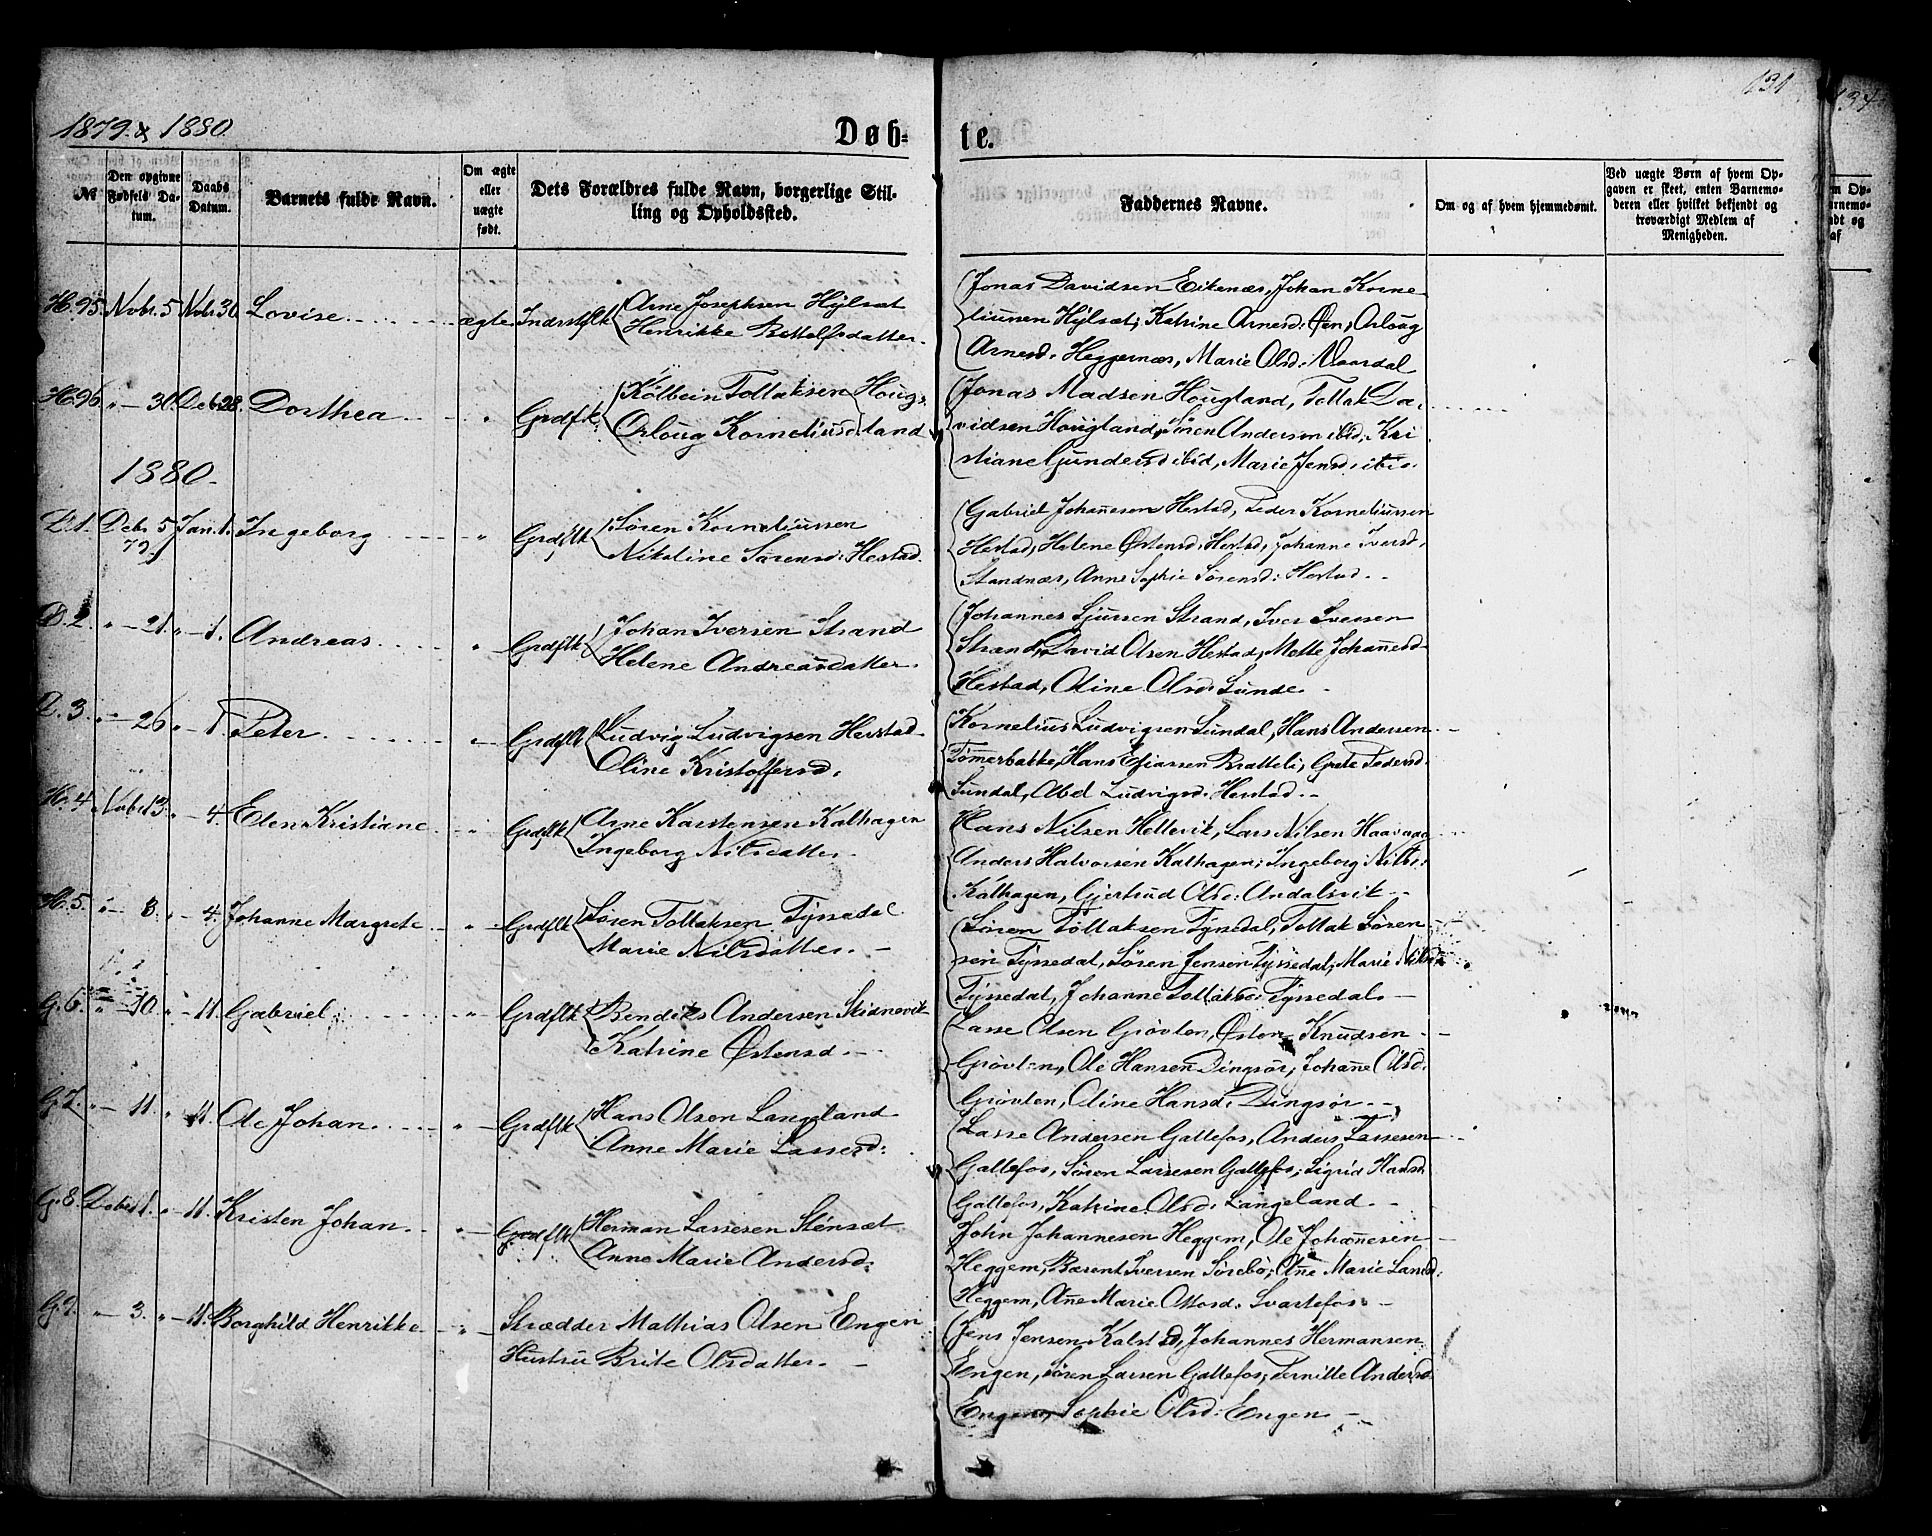 131
134
1879 & 1880.
Døb-
te.
№
Den opgivne Fødsels Datum.
Daabs Datum.
Barnets fulde Navn.
Om ægte eller uægte født.
Dets Forældres fulde Navn, borgerlige Stilling og Opholdssted.
Faddernes Navne.
Om og af hvem hjemmedøbt.
Ved uægte Børn af hvem Opgaven er skeet, enten Barnemoderen eller hvilket bekjendt og troværdigt Medlem af Menigheden.
H. 95. Novbr. 5 Novbr 30 Lovise ægte Indrstflk Arne Josephsen Hylsæt
Henrikke Bottolfsdatter.
Jonas Davidsen Eikenæs, Johan Korne-
liussen Hylsæt, Katrine Arnesd: Øen, Orloug
Arnesd: Heggernæs, Marie Olsd: Vaardal
H. 96. " - 30. Deb. 28. Dorthea " Grdflk Kolbein Tollaksen Houg-
Orloug Korneliusd: land
Jonas Madsen Hougland, Tollak Da-
vidsen Hougland, Søren Andersen ibid, Kri-
stiane Gundersd ibid, Marie Jensd: ibid.
1880.
D. 1. Debr 5 79. Jan. 1. Ingeborg " Grdflk Søren Korneliussen
Nikoline Sørensd: Hestad.
Gabriel Johannesen Hestad, Peder Korneliussen
Hestad, Helene Østensd: Hestad, Johanne Iversd:
Standnæs, Anne Sophie Sørensd: Hestad.
D. 2. " - 21. " - 1. Andreas " Grdflk Johan Iversen Strand
Helene Andreasdatter.
Johannes Sjursen Strand, Iver Iversen
Strand, David Olsen Hestad, Malte Johannesd:
Hestad, Oline Olsd: Sunde.
D. 3. " - 26 " - 1 Peter " Grdflk Ludvig Ludvigsen Herstad
Oline Kristoffersd:
Kornelius Ludvigsen Sundal, Hans Andersen
Tømmerbakke, Hans Eliassen Bratteli, Grete Pedersd:
Sundal, Abel Ludvigsd: Herstad.
H. 4. Novbr 13. " - 4. Elen Kristiane " Grdflk Arne Karstensen Kalhagen
Ingeborg Nilsdatter.
Hans Nilsen Hellevik, Lars Nilsen Haavaag
Anders Halvorsen Kalhagen, Ingeborg Nilsd:
Kalhagen, Gjertrud Olsd: Andalsvik
H. 5. " - 8. " - 4. Johanne Margrete " Grdflk Søren Tollaksen Tyssedal
Marie Nilsdatter.
Søren Tollaksen Tyssedal, Tollak Søren-
sen Tyssedal, Søren Jensen Tyssedal, Marie Nilsd:
Tyssedal, Johanne Tollaksd: Tyssedal.
G. 6. " - 10. " - 11. Gabriel " Grdflk Bendiks Andersen Skidnevik
Katrine Østensd.
Lasse Olsen Grøvlen, Østen Knudsen
Grøvlen, Ole Hansen Dingsør, Johanne Olsd:
Grøvlen, Oline Hansd: Dingsør.
G. 7. " - 11. " 11. Ole Johan " Grdflk Hans Olsen Langeland
Anne Marie Lassesd:
Lasse Andersen Gallefos, Anders Lassesen
Gallefos, Søren Lassesen Gallefos, Sigrid Hansd:
Gallefos, Katrine Olsd: Langeland.
G. 8. Debr 1. " - 11. Kristen Johan " Grdflk Herman Lassesen Stensæt
Anne Marie Andersd:
John Johannesen Heggem, Ole Johannesen
Heggem, Bærent Iversen Sørebø, Ane Marie Larsd:
Heggem, Ane Marie Olsd: Svartefos.
G. 9. " - 3. " - 11. Borghild Henrikke " Skrædder Mathias Olsen Engen
Hustru Brite Olsdatter.
Jens Jensen Kalstad, Johannes Hermansen
Engen, Søren Larsen Gallefos, Pernille Andersd:
Engen, Sophie Olsd: Engen.